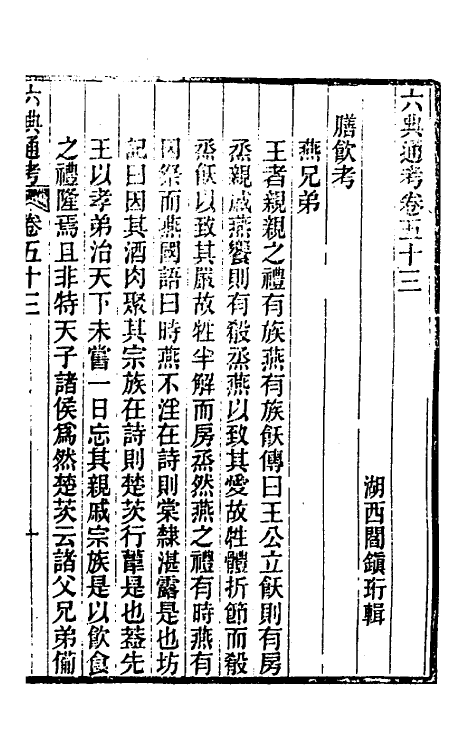 六典通考卷五十三
湖西閻鎭珩輯
膳飲考
燕兄弟
王者親親之禮有族燕有族飫傳曰王公立飫則有房
烝親戚燕饗則有殽烝燕以致其愛故牲體折節而殽
烝飫以致其嚴故牲半解而房烝然燕之禮有時燕有
因祭而燕國語曰時燕不淫在詩則棠隸湛露是也坊
記曰因其酒肉聚其宗族在詩則楚茨行葦是也葢先
王以孝弟治天下未嘗一日忘其親戚宗族是以飲食
之禮隆焉且非特天子諸侯爲然楚茨云諸父兄弟僃
六典通考 卷五十三 一